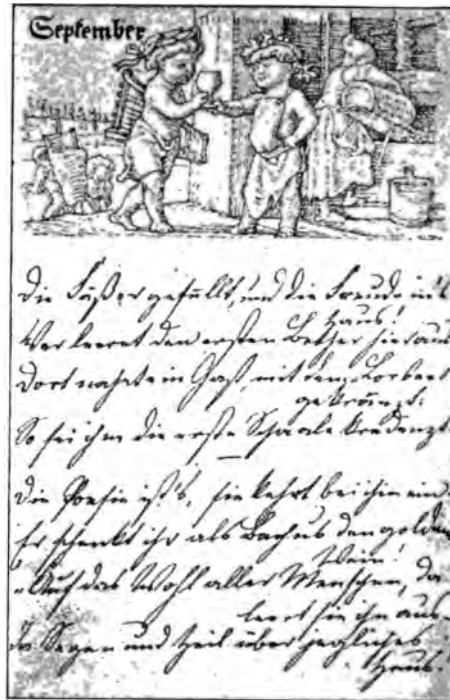 September
Die Fäßer gefüllt, und die Freude in's
Haus!
Wer leeret den ersten Becher hier aus
Dort naht ein Gast, mit dem Lorbeer
gekränzt:
So sei ihm die erste Schaale kredenzt.
Die Poesie ist's, sie kehrt bei ihm ein
Er schenkt ihr als Bachus den golden
Wein!
"Auf das Wohl aller Menschen, da
leert sie ihn aus
Segen und Heil über jegliches
Haus.